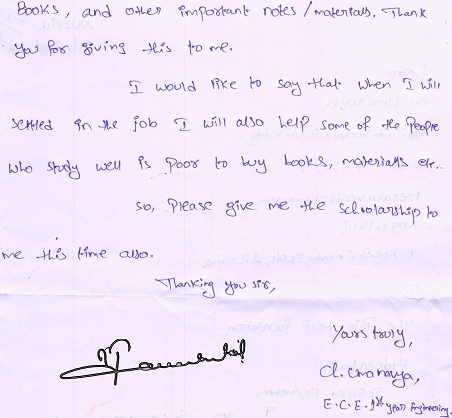 Books, and other important notes/materials. Thank
you for giving this to me.
I would like to say that when I will
settled in the job I will also help some of the people
who study well is poor to buy books, materials etc..
so, please give me the scholarship to
me this time also.
Thanking you sir,
Yours truly,
Ch.
E.C.E. 1st year Engineering.